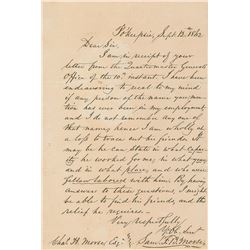 Po'keepsie, Sept. 13th 1862
Dear Sir,
I am in receipt of your
letter from the Quartermaster Generals
Office of the 10th instant. I have been
endeavouring to recal to my mind
if any person of the name you men-
tion has ever been in my employment
and I do not remember any one of
that name; hence I am wholly at
a loss to trace out his friends. It
may be he can State in what capa-
city he worked for me; in what year
and in what place, and who were
fellow-laborers with him; the
answer to these questions, I might
be able to find his friends, and the
relief he requires.
Very respectfully,
Yr. Ob. Servt
Saml. F. B. Morse.
Chas. H. Moser Esq.